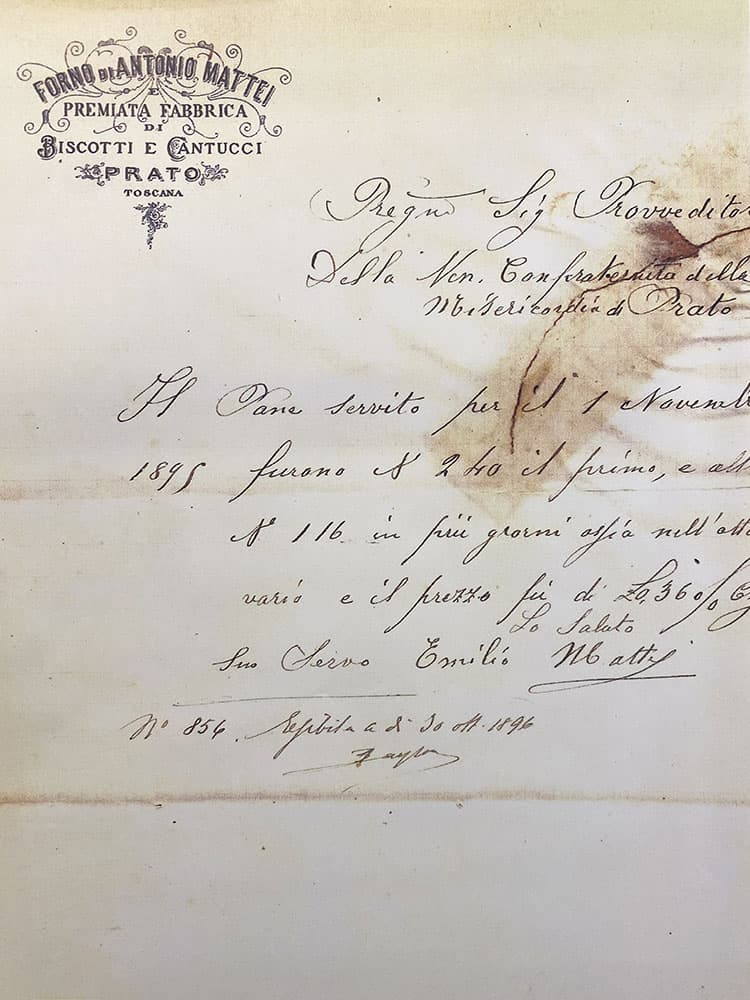 FORNO DI ANTONIO MATTEI
E
PREMIATA FABBRICA
DI
BISCOTTI E CANTUCCI
PRATO
TOSCANA
Pregmo Sig Provveditor
Della Ven. Confraternita della
Misericordia di Prato
Il Pane servito per il 1 Novembre
1895 furono N 240 il primo, e
No 116 in più giorni ossia nell'
vario e il prezzo fù di 36 %
Lo Saluto
Suo Servo Emilio Mattei
No 856. Esibita a dì 30 ott. 1896